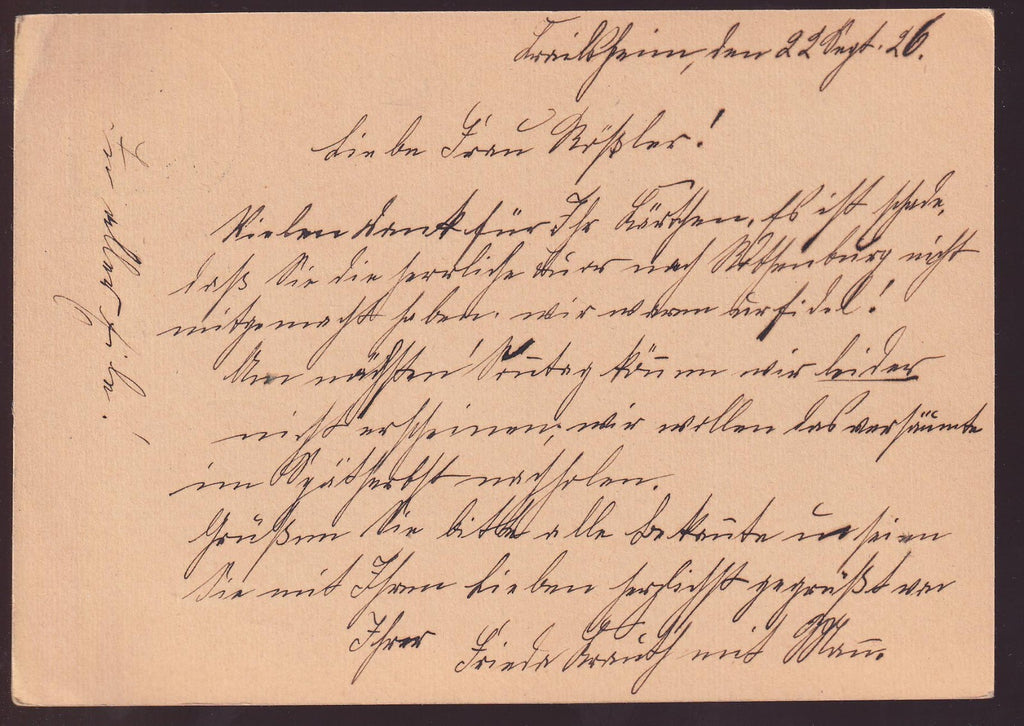 Crailsheim, den 22 Sept. 26.
Liebe Frau Rößler!
Vielen Dank für Ihr Kärtchen. Es ist schade,
daß Sie die herrliche Tour nach Rothenburg nicht
mitgemacht haben. wir waren urfidel!
Am nächsten Sonntag können wir leider
nicht erscheinen, wir wollen das versäumte
im Spätherbst nachholen.
Grüßen Sie bitte alle Bekannte u seien
Sie mit Ihren Lieben herzlichst gegrüßt von
Ihrer Frieda Krauth mit Mann.